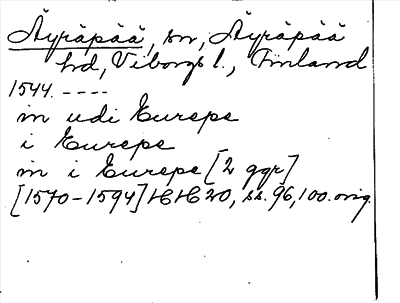 Äyräpää, sn, Äyräpää
hd, Viborgs l., Finland
1544. ----
in udi Eurepe
i Eurepe
in i Eurepe [2 ggr]
[1570-1594] HH 20, ss. 96, 100. orig.